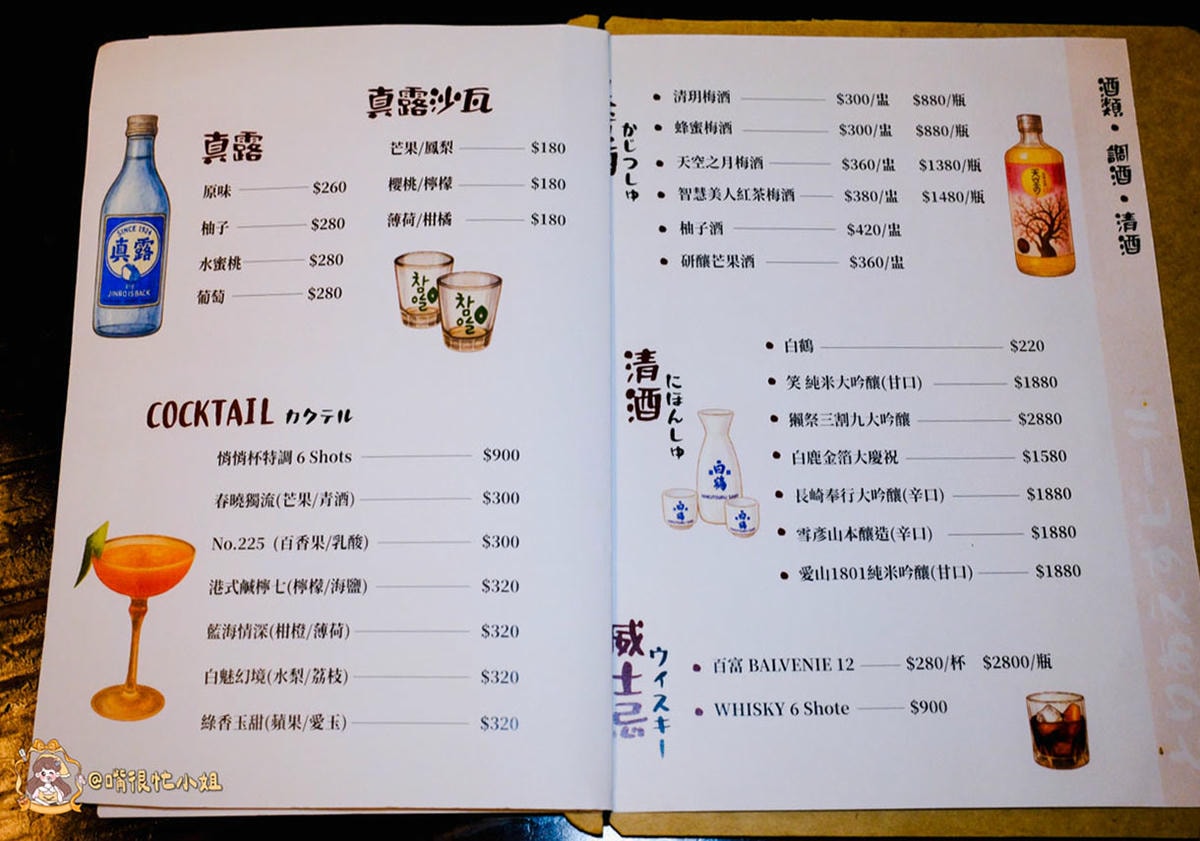 真露
原味 $260
柚子 $280
水蜜桃 $280
葡萄 $280
SINCE 1924
真露
JINRO IS BACK
真露沙瓦
芒果/鳳梨 $180
櫻桃/檸檬 $180
薄荷/柑橘 $180
참이슬
참이슬
COCKTAIL カクテル
悄悄杯特調 6 Shots $900
春曉獨流(芒果/青酒) $300
No.225 (百香果/乳酸) $300
港式鹹檸七(檸檬/海鹽) $320
藍海情深(柑橙/薄荷) $320
白魅幻境(水梨/荔枝) $320
綠香玉甜(蘋果/愛玉) $320
@嘴很忙小姐
かじつしゅ
清玥梅酒 $300/盅 $880/瓶
蜂蜜梅酒 $300/盅 $880/瓶
天空之月梅酒 $360/盅 $1380/瓶
智慧美人紅茶梅酒 $380/盅 $1480/瓶
柚子酒 $420/盅
研釀芒果酒 $360/盅
天空の
酒類・調酒・清酒
清酒
にほんしゅ
白鶴 $220
笑 純米大吟釀(甘口) $1880
獺祭三割九大吟釀 $2880
白鹿金箔大慶祝 $1580
長崎奉行大吟釀(辛口) $1880
雪彥山本釀造(辛口) $1880
愛山1801純米吟釀(甘口) $1880
白鶴
白鶴
白鶴
威士忌
ウイスキー
百富 BALVENIE 12 $280/杯 $2800/瓶
WHISKY 6 Shote $900